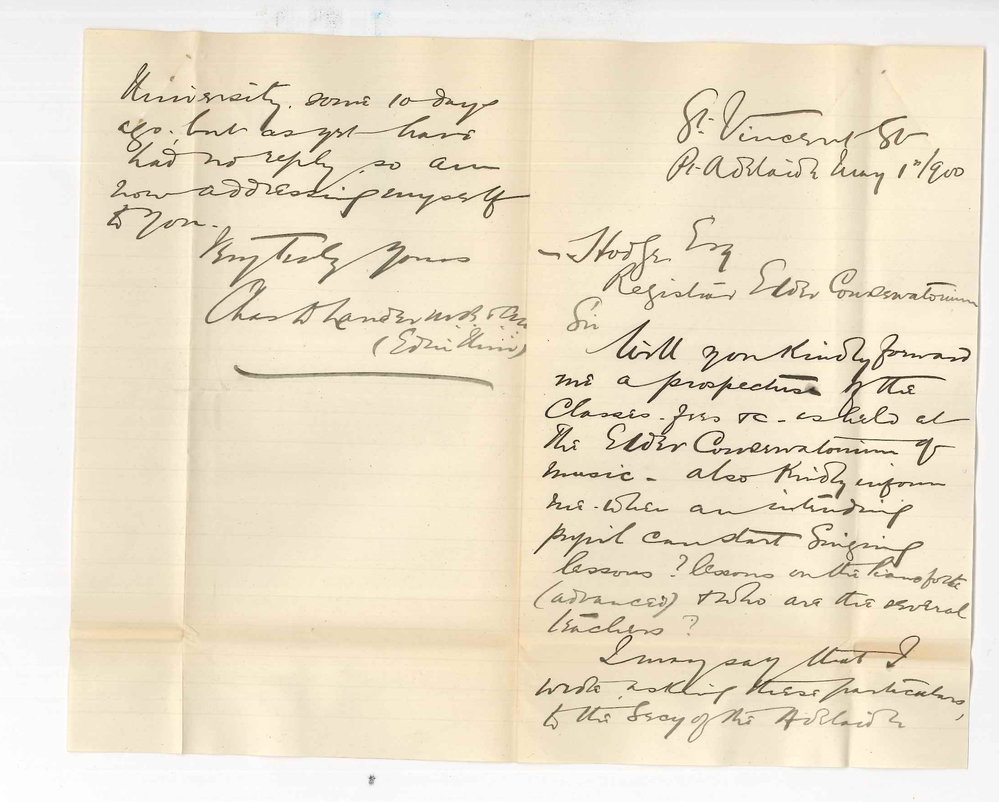 St. Vincent St
Pt. Adelaide May 1st/900
— Hodge Esq
Registrar Elder Conservatorium
Sir
Will you kindly forward
me a prospectus of the
Classes - fees &c - as held at
The Elder Conservatorium of
music - also kindly inform
me - when an intending
pupil can start Singing
lessons? lessons on the Pianoforte
(advanced) & who are the several
teachers?
I may say that I
wrote, asking these particulars,
to the Secy of the Adelaide
University, some 10 days
ago, but as yet have
had no reply, so am
now addressing myself
to you.
Very Truly Yours
Chas
(Edin: Univ:)